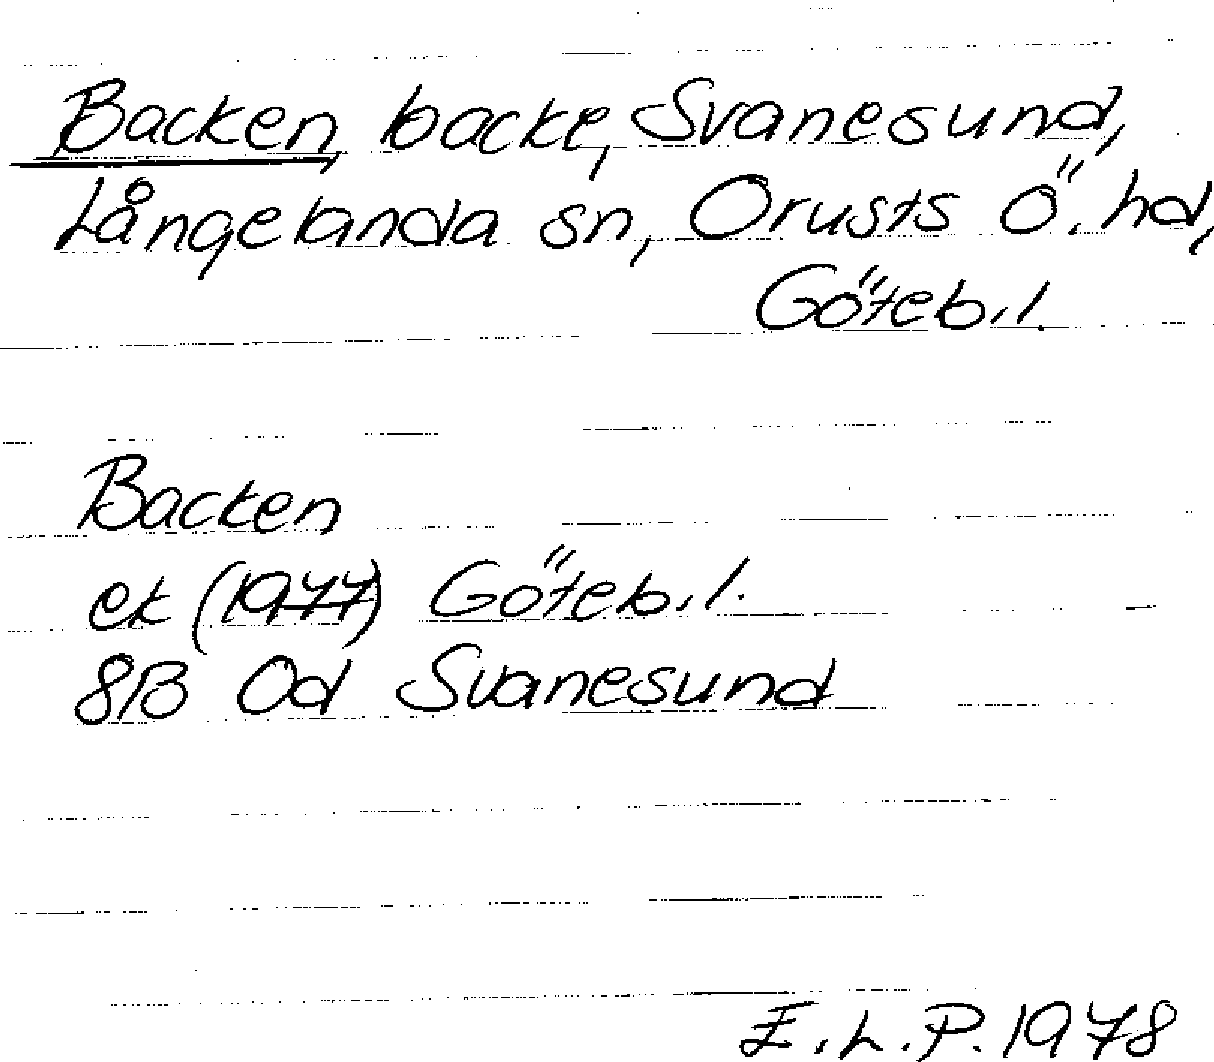 Backen, backe, Svanesund,
Långelanda sn, Orusts Ö. hd,
Göteb. l.
Backen
ek (1977) Göteb. l.
8B 0d Svanesund
E.L.P. 1978